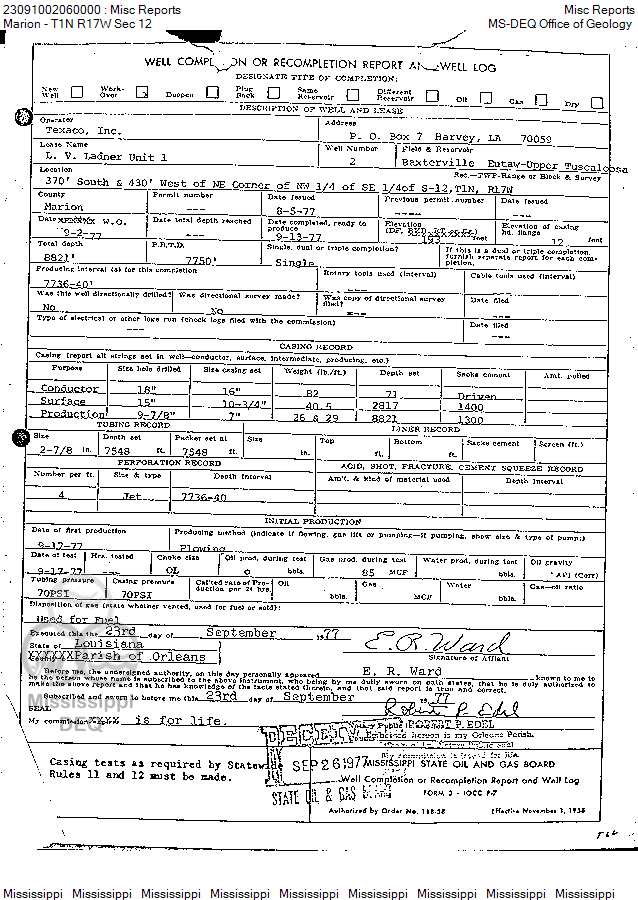 23091002060000 : Misc Reports Misc Reports
Marion - T1N R17W Sec 12 MS-DEQ Office of Geology
WELL COMPL ON OR RECOMPLETION REPORT AN WELL LOG
DESIGNATE TYPE OF COMPLETION:
New Well Work-Over Deepen Plug Back Same Reservoir Different Reservoir Oil Gas Dry
DESCRIPTION OF WELL AND LEASE
Operator Address
Texaco, Inc. P. O. Box 7 Harvey, LA 70059
Lease Name Well Number Field & Reservoir
L. V. Ladner Unit 1 2 Baxterville Eutaw-Upper Tuscaloosa
Location Sec.—TWP-Range or Block & Survey
370' South & 430' West of NE Corner of NW 1/4 of SE 1/4of S-12,T1N, R17W
County Permit number Date Issued Previous permit number Date Issued
Marion --- 8-5-77 ---- ---
Date XXXXXX W.O. Date total depth reached Date completed, ready to produce Elevation Elevation of casing hd. flange
9-2-77 --- 9-13-77 193 feet 12 feet
Total depth P.B.T.D. Single, dual or triple completion? If this is a dual or triple completion, furnish separate report for each completion.
8821' 7750' Single
Producing interval (s) for this completion Rotary tools used (interval) Cable tools used (interval)
7736-40'
Was this well directionally drilled? Was directional survey made? Was copy of directional survey filed? Date filed
No No --- ---
Type of electrical or other logs run (check logs filed with the commission) Date filed
--- ---
CASING RECORD
Casing (report all strings set in well—conductor, surface, intermediate, producing, etc.)
Purpose Size hole drilled Size casing set Weight (lb./ft.) Depth set Sacks cement Amt. pulled
Conductor 18" 16" 82 71 Driven
Surface 15" 10-3/4" 40.5 2817 1400
Production 9-7/8" 7" 26 & 29 8821 1300
TUBING RECORD LINER RECORD
Size Depth set Packer set at Size Top Bottom Sacks cement Screen (ft.)
2-7/8 in. 7548 ft. 7548 ft. in. ft. ft.
PERFORATION RECORD ACID, SHOT, FRACTURE, CEMENT SQUEEZE RECORD
Number per ft. Size & type Depth Interval Am't. & kind of material used Depth Interval
4 Jet 7736-40
INITIAL PRODUCTION
Date of first production Producing method (indicate if flowing, gas lift or pumping—if pumping, show size & type of pump:)
9-17-77 Flowing
Date of test Hrs. tested Choke size Oil prod. during test Gas prod. during test Water prod. during test Oil gravity
9-17-77 --- OL 0 bbls. 85 MCF bbls. ° API (Corr)
Tubing pressure Casing pressure Cal'ted rate of Production per 24 hrs. Oil Gas Water Gas—oil ratio
70PSI 70PSI bbls. MCF bbls.
Disposition of gas (state whether vented, used for fuel or sold):
Used for Fuel
Executed this the 23rd day of September 1977 E. R. Ward
State of Louisiana Signature of Affiant
XXXXXX Parish of Orleans
Before me, the undersigned authority, on this day personally appeared E. R. Ward known to me to
be the person whose name is subscribed to the above instrument, who being by me duly sworn on oath states, that he is duly authorized to
make the above report and that he has knowledge of the facts stated therein, and that said report is true and correct.
Subscribed and sworn to before me this 23rd day of September 1977
SEAL
Mississippi
DEQ
My commission XXXX is for life.
Notary Public ROBERT P. EDEL
Orleans Parish.
RECEIVED
SEP 26 1977
STATE OIL & GAS BOARD
Casing tests as required by Statewide
Rules 11 and 12 must be made.
MISSISSIPPI STATE OIL AND GAS BOARD
Well Completion or Recompletion Report and Well Log
FORM 3 - IOCC P-7
Authorized by Order No. 118-58 Effective November 1, 1958
Mississippi Mississippi Mississippi Mississippi Mississippi Mississippi Mississippi Mississippi Mississippi